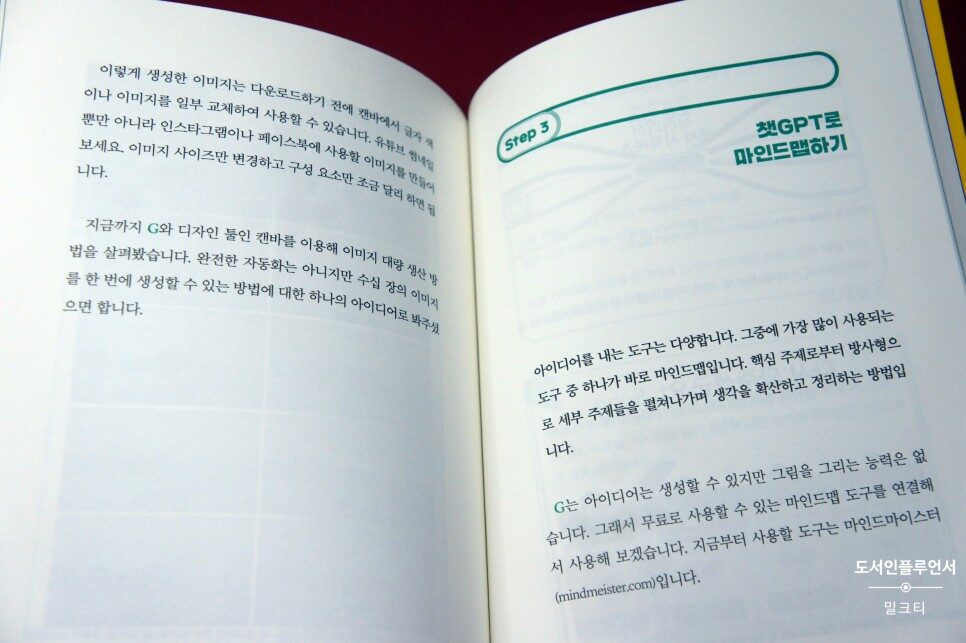 이렇게 생성한 이미지는 다운로드하기 전에 캔바에서 글자 색
이나 이미지를 일부 교체하여 사용할 수 있습니다. 유튜브 썸네일
뿐만 아니라 인스타그램이나 페이스북에 사용할 이미지를 만들어
보세요. 이미지 사이즈만 변경하고 구성 요소만 조금 달리 하면 됩
니다.
지금까지 G와 디자인 툴인 캔바를 이용해 이미지 대량 생산 방
법을 살펴봤습니다. 완전한 자동화는 아니지만 수십 장의 이미지
를 한 번에 생성할 수 있는 방법에 대한 하나의 아이디어로 봐주셨
으면 합니다.
Step 3
챗GPT로
마인드맵하기
아이디어를 내는 도구는 다양합니다. 그중에 가장 많이 사용되는
도구 중 하나가 바로 마인드맵입니다. 핵심 주제로부터 방사형으
로 세부 주제들을 펼쳐나가며 생각을 확산하고 정리하는 방법입
니다.
G는 아이디어는 생성할 수 있지만 그림을 그리는 능력은 없
습니다. 그래서 무료로 사용할 수 있는 마인드맵 도구를 연결해
서 사용해 보겠습니다. 지금부터 사용할 도구는 마인드마이스터
(mindmeister.com)입니다.
도서인플루언서
밀크티